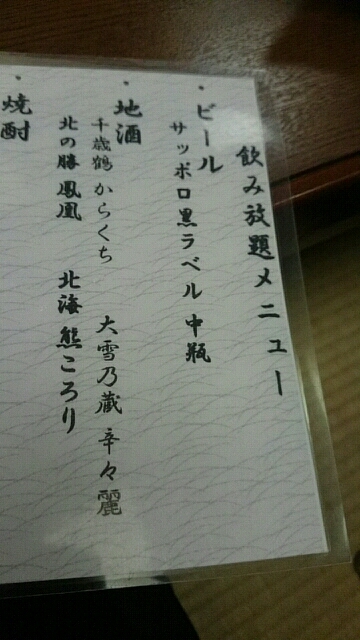 飲み放題メニュー
・ビール
サッポロ黒ラベル 中瓶
・地酒
千歳鶴 からくち 大雪乃蔵 辛々麗
北の勝 鳳凰 北海 熊ころり
・焼酎